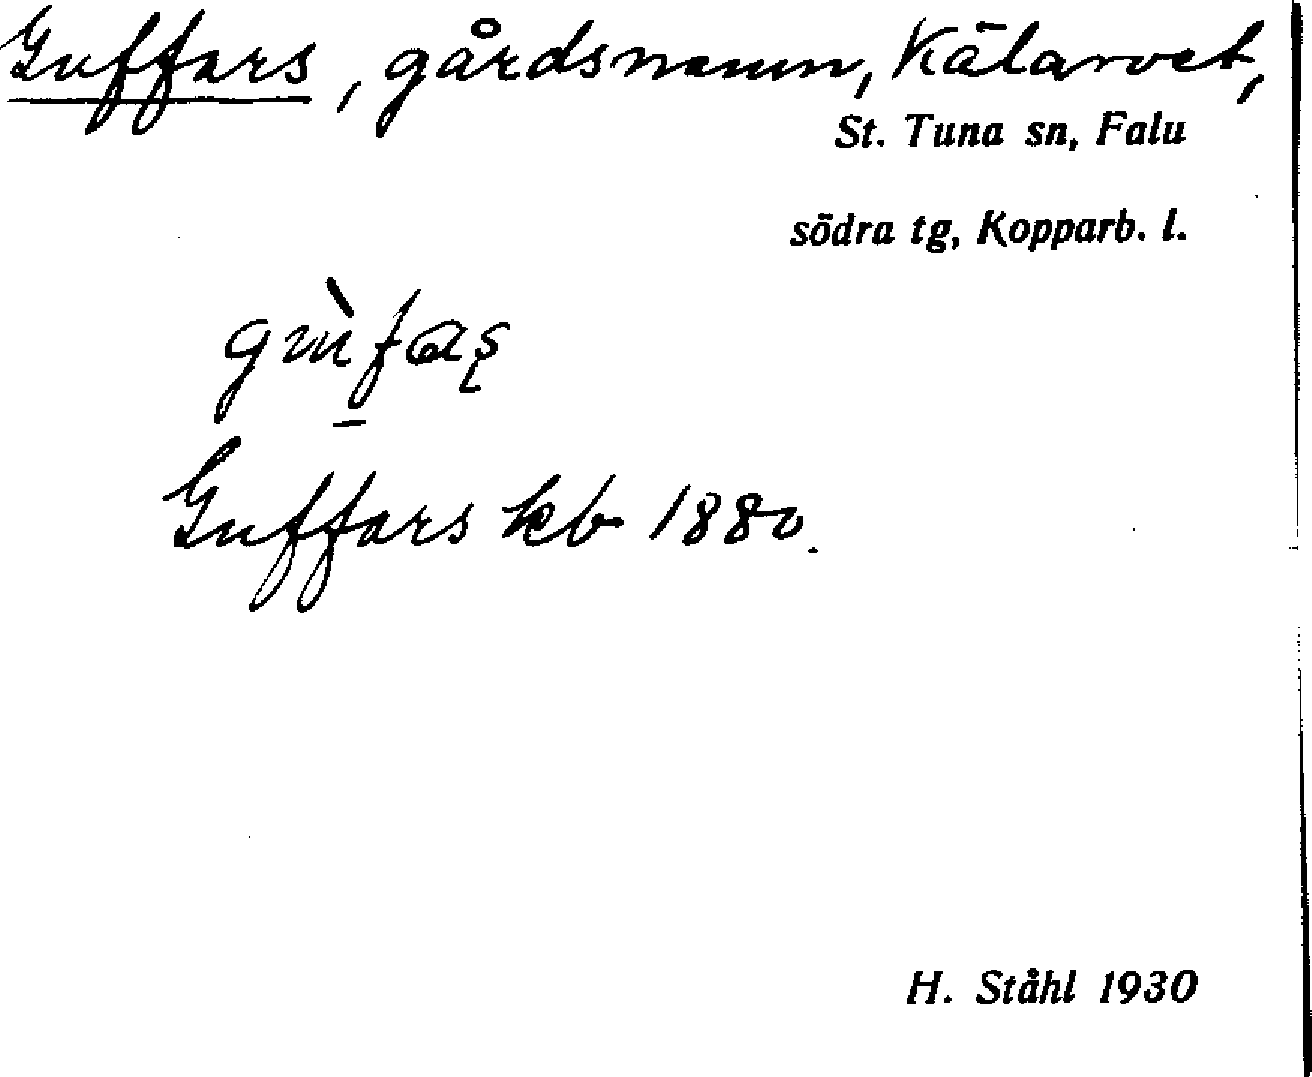 Guffars, gårdsnamn, Kälarvet,
St. Tuna sn, Falu
södra tg, Kopparb. l.
Guffars kb 1880.
H. Ståhl 1930